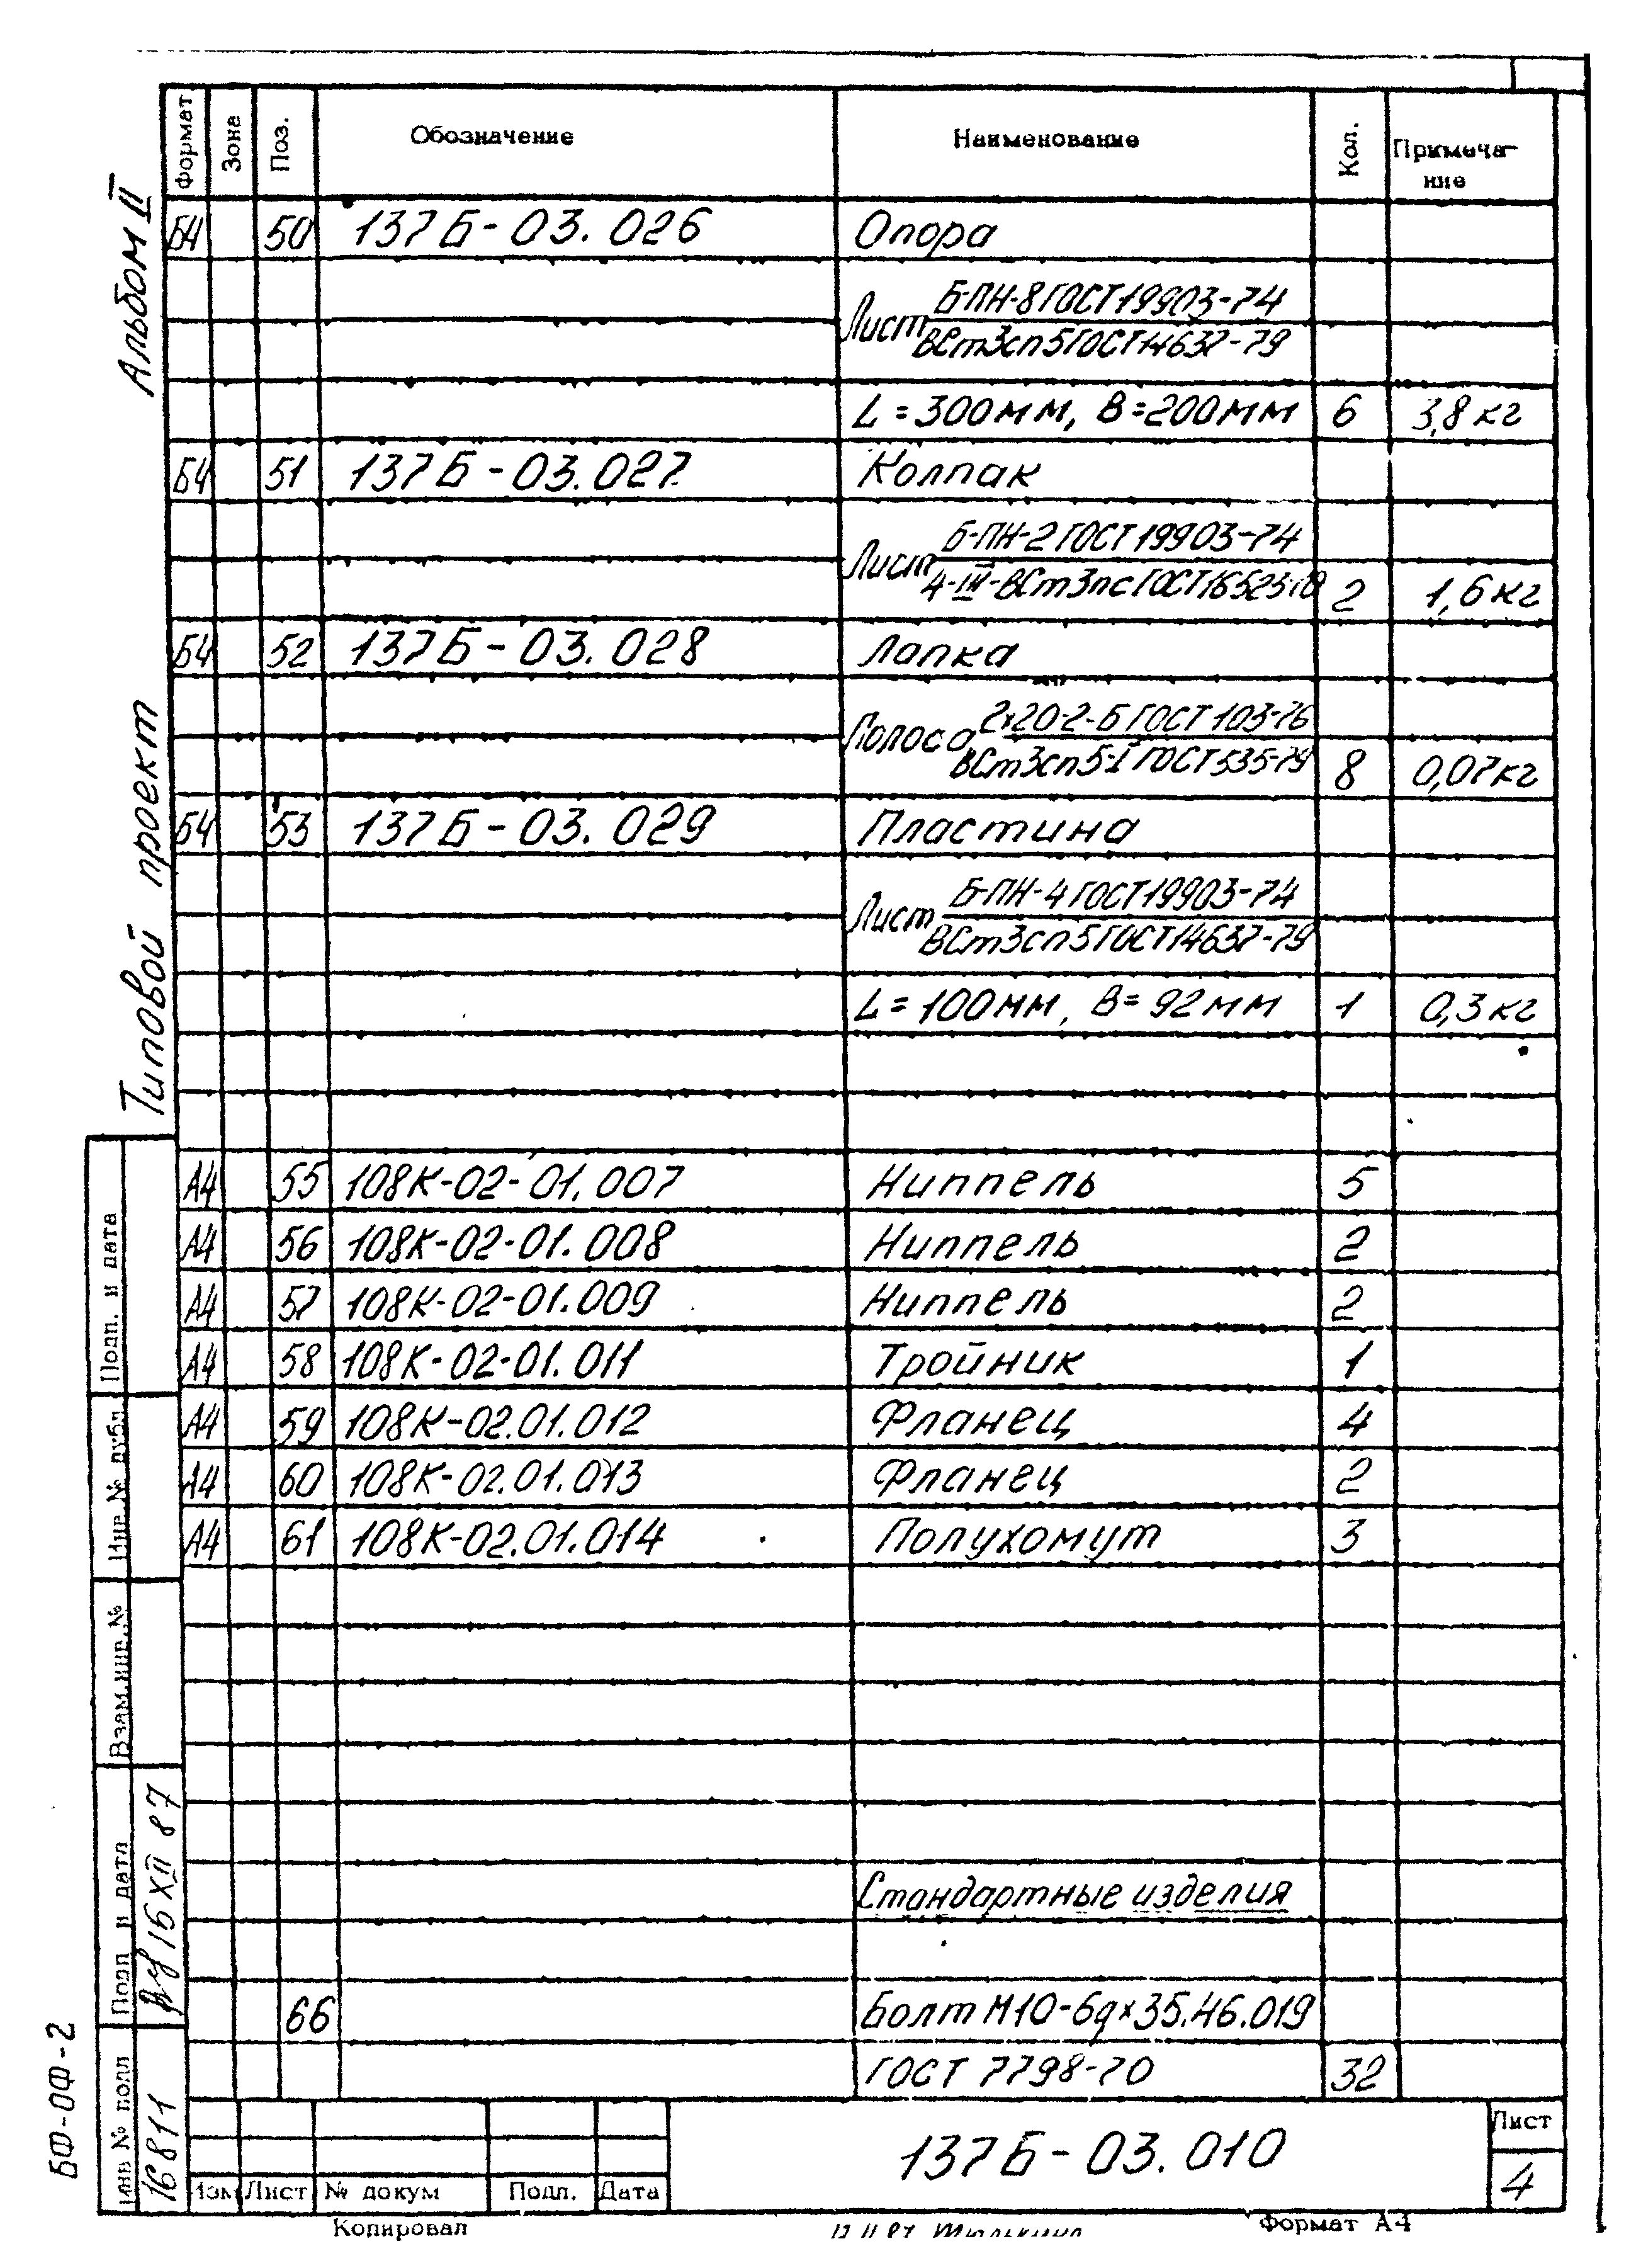 Альбом II
Типовой проект
Формат Зона Поз. Обозначение Наименование Кол. Примеча-
ние
Б4 50 137Б-03.026 Опора
Лист Б-ПН-8 ГОСТ 19903-74
ВСт3сп5 ГОСТ 14637-79
L=300мм, B=200мм 6 3,8 кг
Б4 51 137Б-03.027 Колпак
Лист Б-ПН-2 ГОСТ 19903-74
4-III-ВСт3пс ГОСТ 16523-70 2 1,6 кг
Б4 52 137Б-03.028 Лапка
Полоса 2х20-2-Б ГОСТ 103-76
ВСт3сп5-I ГОСТ 535-79 8 0,07 кг
Б4 53 137Б-03.029 Пластина
Лист Б-ПН-4 ГОСТ 19903-74
ВСт3сп5 ГОСТ 14637-79
L=100мм, B=92мм 1 0,3 кг
А4 55 108К-02-01.007 Ниппель 5
А4 56 108К-02-01.008 Ниппель 2
А4 57 108К-02-01.009 Ниппель 2
А4 58 108К-02-01.011 Тройник 1
А4 59 108К-02.01.012 Фланец 4
А4 60 108К-02.01.013 Фланец 2
А4 61 108К-02.01.014 Полухомут 3
Стандартные изделия
66 Болт М10-6gх35.46.019
ГОСТ 7798-70 32
Подп. и дата
Инв. № дубл
Взам.инв.№
Подп и дата
15 XII 87
Инв № подл
16811
БФ-ОФ-2
Изм Лист № докум Подп. Дата
137Б-03.010
Лист
4
Копировал
Формат А4